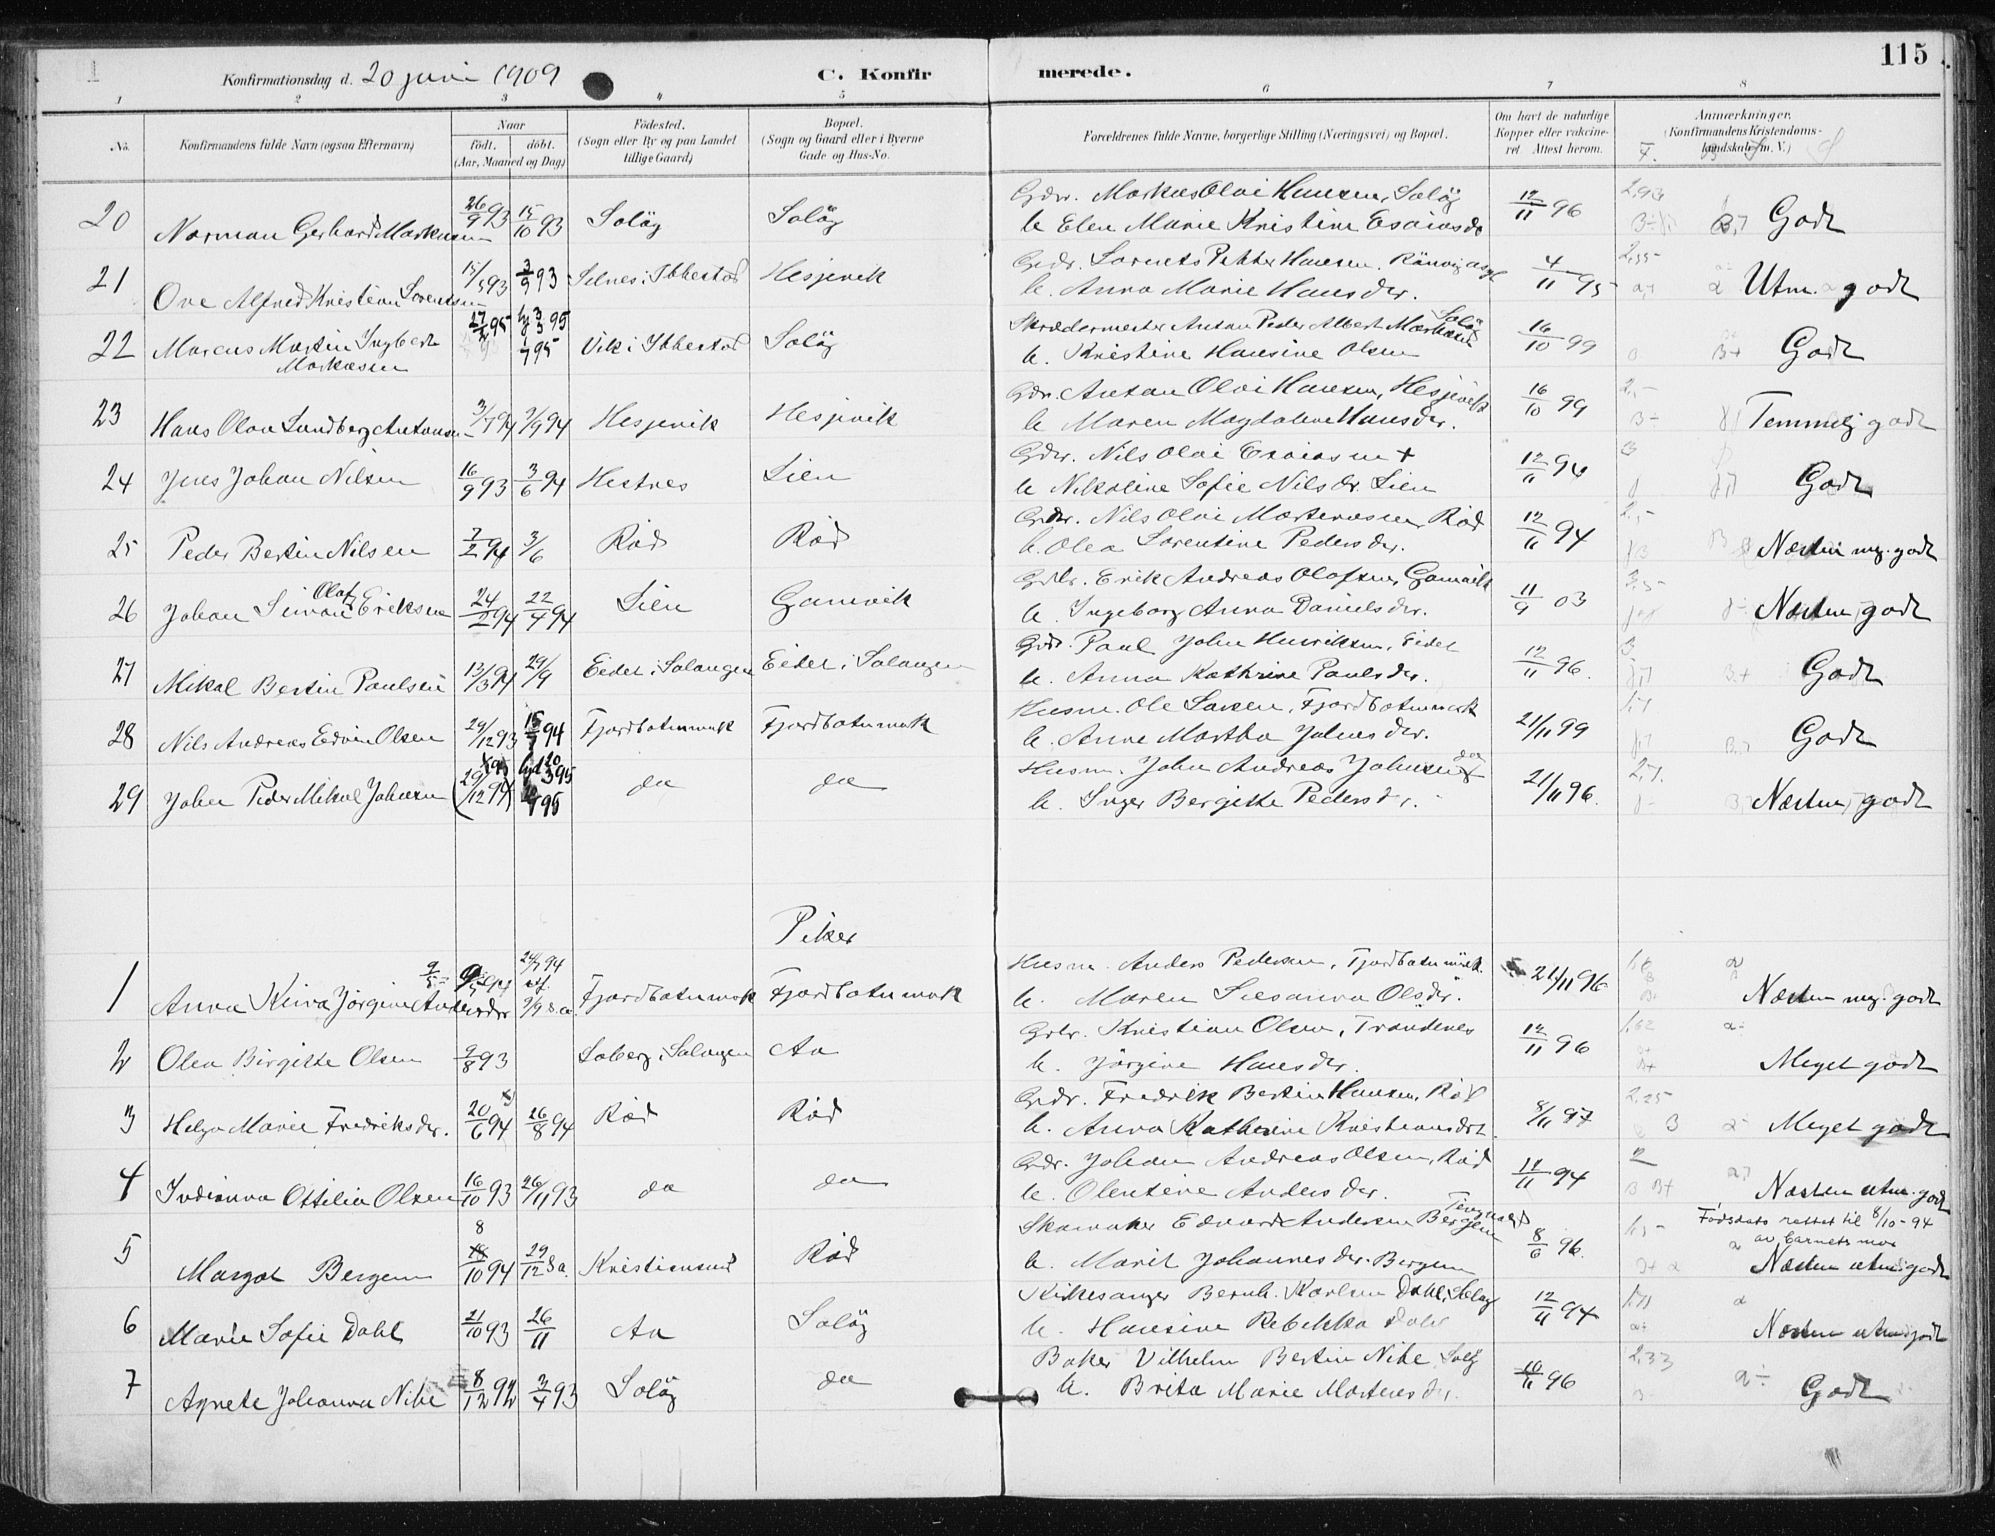 115
Konfirmationsdag d. 20 juni 1909 C. Konfirmerede.
1 2 3 4 5 6 7 8
No. Konfirmandens fulde Navn (ogsaa Efternavn) Naar födt. döbt. (Aar, Maaned og Dag) Födested. (Sogn eller By og paa Landet tillige Gaard) Bopæl. (Sogn og Gaard eller i Byerne Gade og Hus-No. Forældrenes fulde Navne, borgerlige Stilling (Næringsvei) og Bopæl. Om havt de naturlige Kopper eller vakcineret. Attest herom. Anmærkninger. (Konfirmandens Kristendomskundskab m. V.)
20 Norman Gerhard Markussen 26/9 93 15/10 93 Soløy Soløy Gdbr. Markus Olai Hansen, Soløy
h. Elen Marie Kristine Esaiasdr 12/11 96 Godt
21 Ove Alfred Kristian Sorentsen 15/5 93 3/9 93 Selnes i Ibbestad Hesjevik Gdbr. Sorents Petter Hansen.
h. Anna Marie Hansdr. 4/11 95 Utm. godt
22 Marcus Martin Ingbert Markussen 27/2 95 Vik i Ibbestad Soløy Skrædermester Anton Peder Albert Markussen Soløy
h. Kristine Hansine Olsen 16/10 99 Godt
23 Hans Olav Lundberg Antonsen 3/7 94 2/9 94 Hesjevik Hesjevik Gdbr. Anton Olai Hansen, Hesjevik
h. Maren Magdalene Hansdr. 16/10 99 Temmelig godt
24 Jens Johan Nilsen 16/9 93 3/6 94 Hestnes Lien Gdbr. Nils Olai Esaiassen +
h. Nikoline Sofie Nilsdr. Lien 12/11 96 Godt
25 Peder Bertin Nilsen 2/2 94 3/6 Rød Rød Gdbr. Nils Olai Mortenssen, Rød
h. Olea Sorentine Pedersdr. 12/11 94 Næsten meg. godt
26 Johan Simon Olaf Eriksen 24/2 94 22/4 94 Lien Gamvik Gdbr. Erik Andreas Olofsen, Gamvik
h. Ingeborg Anna Danielsdr. 11/9 03 Næsten godt
27 Mikal Bertin Paulsen 13/3 94 29/9 Eidet i Salangen Eidet i Salangen Gdbr. Paul John Henriksen, Eidet
h. Anna Kathrine Paulsdr. 12/11 96. Godt
28 Nils Andreas Edvin Olsen 29/12 93 15/7 94 Fjordbotnmark Fjordbotnmark Husm. Ole Larsen, Fjordbotnmark
h. Anne Martha Johnsdr. 21/11 99 Godt
29 John Peder Mikal Johnsen 29/12 94 da da Husm. John Andreas Johnsen da
h. Inger Bergitte Pedersdr. 21/11 96. Næsten godt
Piker
1 Anna Kewa Jørgine Andersdr 9/5 94 Fjordbotnmark Fjordbotnmark Husm. Anders Pedersen, Fjordbotnmark.
h. Maren Susanna Olsdr. 21/11 96 Næsten meg. godt
2 Olea Birgitte Olsen 9/8 93 Soberg i Salangen Aa Gdbr. Kristian Olsen, Trondenes
h. Jørgine Hansdr. 12/11 96 Meget godt
3 Helga Marie Fredriksdr. 20/6 94 26/8 94 Rød Rød Gdbr. Fredrik Bertin Hansen, Rød
h. Anna Kathrine Kristiansdr. 8/11 97 Meget godt
4 Indianna Ottilia Olsen 16/10 93 26/11 93 da da Gdbr. Johan Andreas Olsen, Rød
h. Olentine Andersdr. 11/11 94 Næsten utm. godt
5 Margot Bergem 8/10 94 29/12 s.a. Kristiansund Rød Skomaker Edvard Andersen Bergem Tingvold
h. Marit Johannesdr. Bergem 8/6 96. Fødsdato rettet til 8/10-94 av barnets mor
Næsten utm. godt
6 Marie Sofie Dahl 21/10 93 26/11 Aa Soløy Kirkesanger Bernh. Karlsen Dahl, Soløy
h. Hansine Rebekka Dahl 12/11 94 Næsten utm. godt
7 Agnete Johanna Nibe 8/12 92 3/4 93 Soløy da Baker Vilhelm Bertin Nibe, Soløy
h. Brita Marie Mortensdr. 10/11 96 Godt